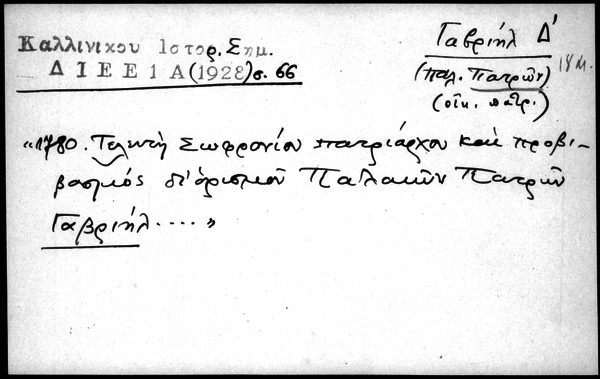 Καλλινικου Ιστορ. Σημ.
ΔΙΕΕ 1 Α (1928) σ. 66
Γαβριήλ Δ'
(παλ. Πατρῶν) 18 Μ.
(οἰκ. πατρ.)
«1780. Τελευτὴ Σωφρονίου πατριάρχου καὶ προβι-
βασμὸς δι' ὁρισμοῦ Παλαιῶν Πατρῶν
Γαβριήλ ....»